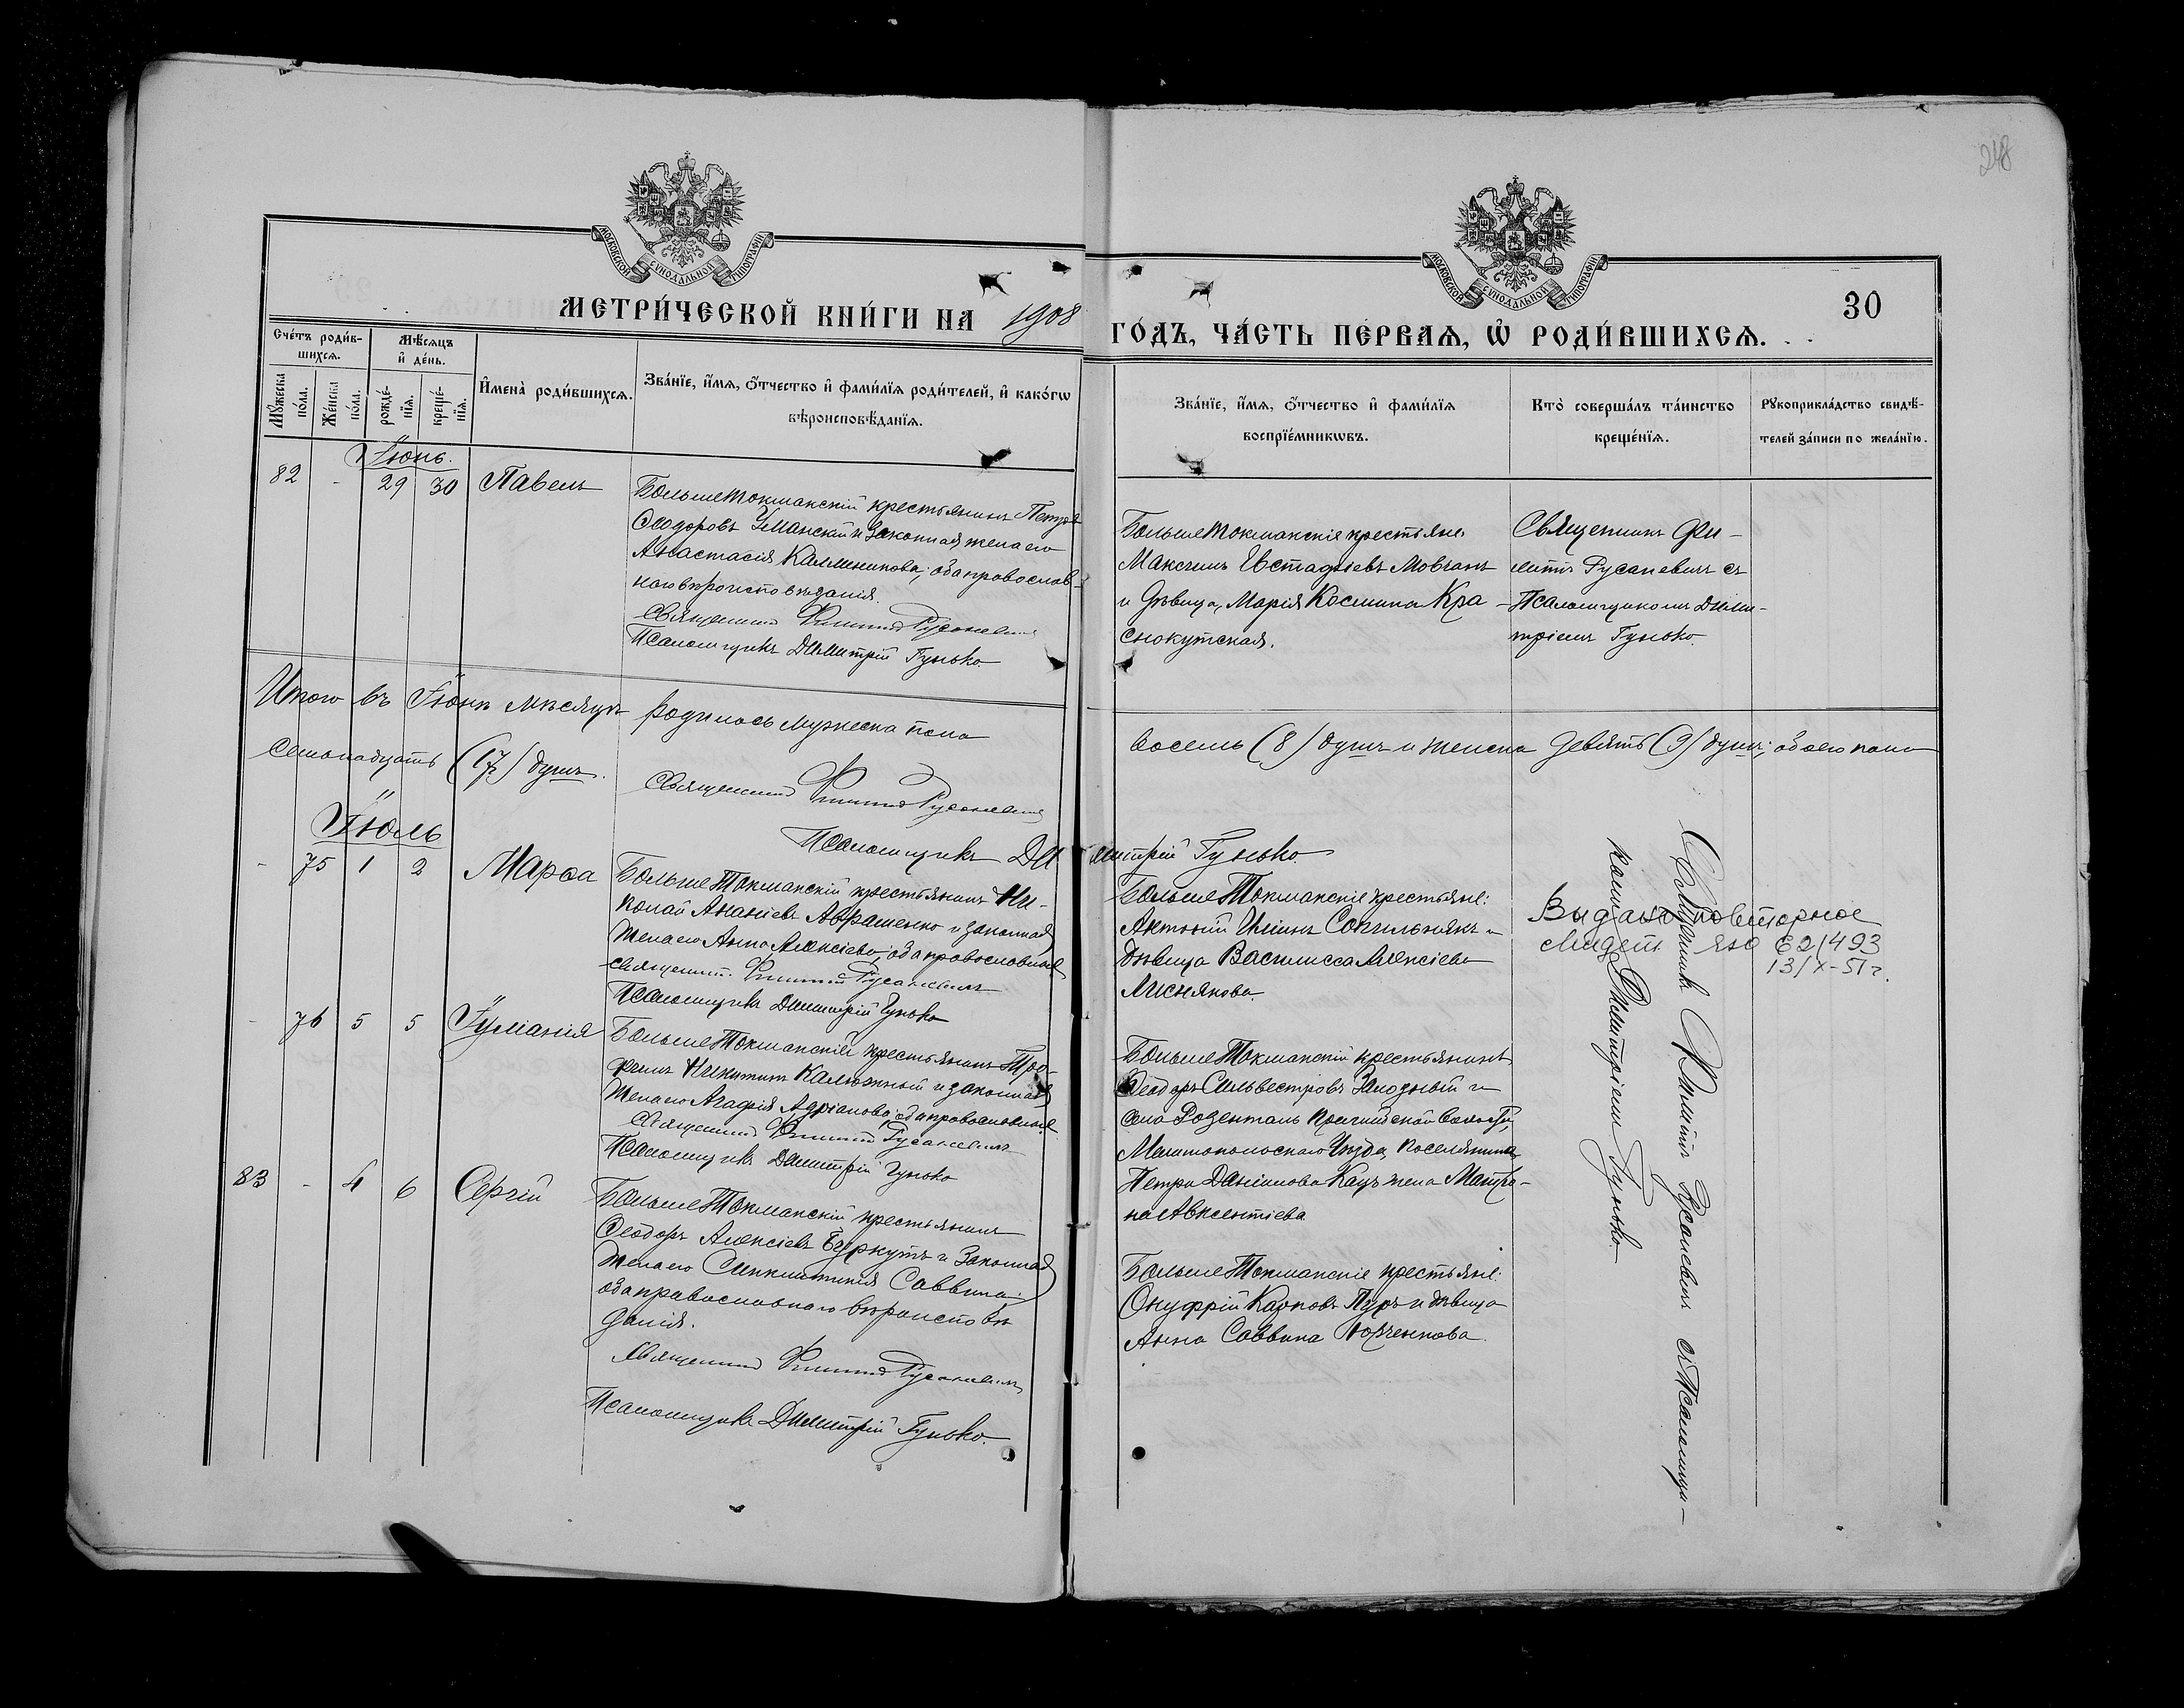 248
МОСКОВСКОЙ СѴНОДАЛЬНОЙ ТИПОГРАФІИ
МОСКОВСКОЙ СѴНОДАЛЬНОЙ ТИПОГРАФІИ
30
МЕТРИ́ЧЕСКОЙ КНИ́ГИ НА 1908
ГО́ДЪ, ЧА́СТЬ ПЕ́РВАѦ, Ѽ РОДИ́ВШИХСѦ.
Сче́тъ роди́в-
шихсѧ.
Мѣ́сѧцъ
и҆ де́нь.
Мꙋ́жеска
по́ла.
Же́нска
по́ла.
рожде́-
нїѧ.
креще́-
нїѧ.
И҆мена̀ роди́вшихсѧ.
Зва́нїе, и҆́мѧ, ѻ҆́тчество и҆ фами́лїѧ роди́телей, и҆ како́гѡ
вѣроисповѣ́данїѧ.
Зва́нїе, и҆́мѧ, ѻ҆́тчество и҆ фами́лїѧ
воспрїе́мникѡвъ.
Кто̀ соверша́лъ та́инство
креще́нїѧ.
Рꙋкоприкла́дство свидѣ́-
телей за́писи по жела́нїю.
Іюнь.
82 - 29 30 Павелъ
Больше Токмакскій крестьянинъ Петръ
Ѳеодоровъ Уманскій и законная жена его
Анастасія Каллиникова; оба православ-
наго вѣроисповѣданія.
Священникъ Филиппъ Русаневичъ
Псаломщикъ Димитрій Гунько
Больше Токмакскіе крестьяне:
Максимъ Евстафіевъ Мовчанъ
и дѣвица, Марія Косьмина Кра-
снокутская.
Священникъ Фи-
липпъ Русаневичъ съ
Псаломщикомъ Дими-
тріемъ Гунько.
Итого въ Іюнѣ мѣсяцѣ родилось мужеска пола
восемь (8) душъ и женска девять (9) душъ; обоего пола
семнадцать (17) душъ.
Священникъ Филиппъ Русаневичъ
Псаломщикъ Димитрій Гунько.
Іюль
- 75 1 2 Марѳа
Больше Токмакскій крестьянинъ Ни-
колай Ананіевъ Аврашенко и законная
жена его Анна Алексіева; оба православные
Священникъ Филиппъ Русаневичъ
Псаломщикъ Димитрій Гунько
Больше Токмакскіе крестьяне:
Антоній Ильинъ Сопильнякъ и
дѣвица Василисса Алексіева
Лиснякова.
Видано повторное
свидет. ЯЮ 621493
13/X-51 г.
- 76 5 5 Іуліанія
Больше Токмакскій крестьянинъ Тро-
фимъ Никитинъ Калюжный и законная
жена его Агафія Адріанова; оба православные
Священникъ Филиппъ Русаневичъ
Псаломщикъ Димитрій Гунько
Больше Токмакскій крестьянинъ
Ѳеодоръ Сильвестровъ и
села Розенталь волости,
Мелитопольскаго уѣзда, поселянина
Петра Даніилова Кацъ жена Матро-
на Авксентіева
83 - 4 6 Сергій
Больше Токмакскій крестьянинъ
Ѳеодоръ Алексіевъ Буркутъ и законная
жена его Синклитикія Саввина;
оба православнаго вѣроисповѣ-
данія.
Священникъ Филиппъ Русаневичъ
Псаломщикъ Димитрій Гунько.
Больше Токмакскіе крестьяне:
Онуфрій Карповъ и дѣвица
Анна Саввина
Священникъ Филиппъ Русаневичъ съ Псаломщи-
комъ Димитріемъ Гунько.